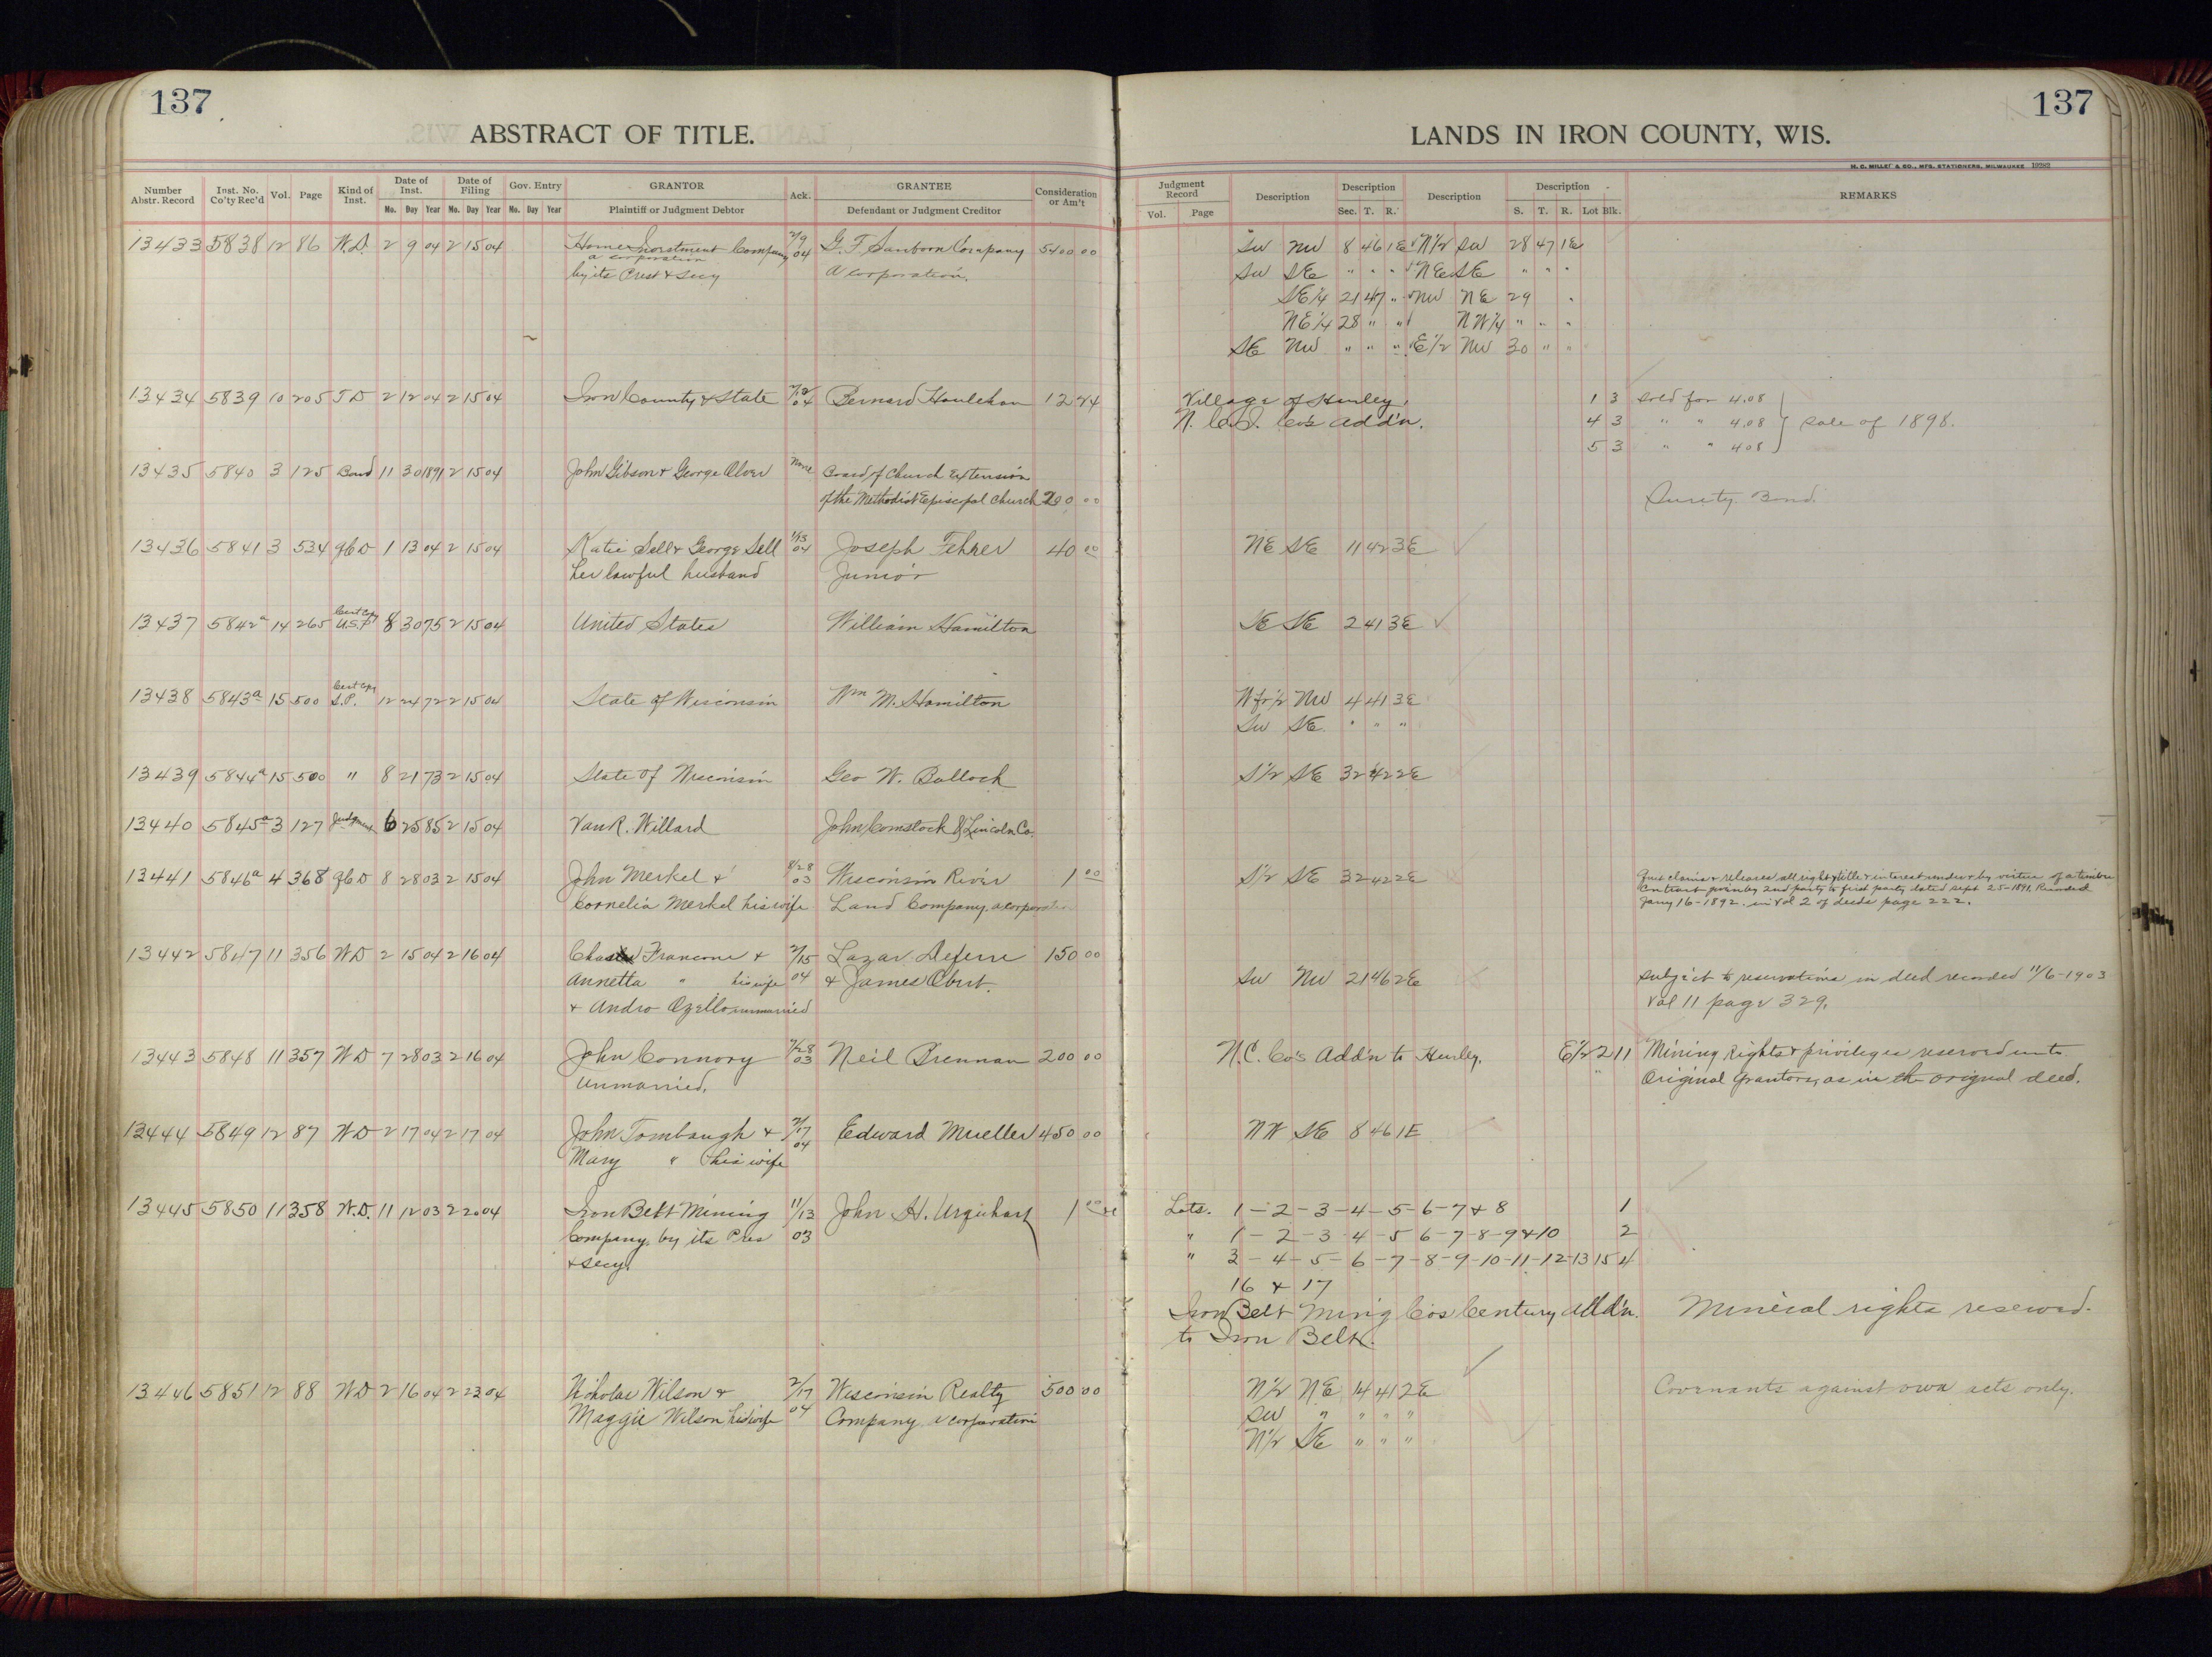 137
137
ABSTRACT OF TITLE.
LANDS IN IRON COUNTY, WIS.
H. C. MILLER CO., MFG. STATIONERS, MILWAUKEE 19282
Number Abstr. Record | Inst. No. Co'ty Rec'd | Vol. | Page | Kind of Inst. | Date of Inst. Mo. Day Year | Date of Filing Mo. Day Year | Gov. Entry Mo. Day Year | GRANTOR Plaintiff or Judgment Debtor | Ack. | GRANTEE Defendant or Judgment Creditor | Consideration or Am't | Judgment Record Vol. Page | Description | Description Sec. T. R. | Description | Description S. T. R. Lot Blk. | REMARKS
13433 5838 12 86 W.D. 2 9 04 2 15 04 Home Investment Company 2/9 04 G. F. Sanborn Company 5400 00 SW NW 8 46 1E N1/2 SW 28 47 1E
a corporation
by its Prest & Secy A corporation. SW SE " " " NE SE " " "
SE1/4 21 47 " NW NE 29 "
NE1/4 28 " " NW1/4 " " "
SE NW " " " E1/2 NW 30 " "
13434 5839 10 205 T D 2 12 04 2 15 04 Iron County & State 2/12 04 Bernard Houlehan 12 24 Village of Hurley, 1 3 Sold for 4.08
N. C. I. Co's Add'n. 4 3 " " 4.08 } Sale of 1898.
5 3 " " 4 08
13435 5840 3 125 Bond 11 30 1891 2 15 04 John Gibson & George Oliver None Board of Church Extension
of the Methodist Episcopal Church 200 00 Surety Bond.
13436 5841 3 534 QCD 1 13 04 2 15 04 Katie Sell & George Sell 1/13 04 Joseph Fehrer 40 00 NE SE 11 42 3E
her lawful husband Junior
13437 5842a 14 265 Cert Copy U.S.P 8 30 75 2 15 04 United States William Hamilton SE SE 2 41 3E
13438 5843a 15 500 Cert Copy S.P. 12 24 72 2 15 04 State of Wisconsin Wm M. Hamilton W fr 1/2 NW 4 41 3E
SW SE. " " "
13439 5844a 15 500 " 8 21 73 2 15 04 State of Wisconsin Geo W. Bullock S1/2 SE 32 42 2E
13440 5845a 3 127 Judgment 6 25 85 2 15 04 Van R. Willard John Comstock & Lincoln Co.
13441 5846a 4 368 QCD 8 28 03 2 15 04 John Merkel & 8/28 03 Wisconsin River 1 00 S1/2 SE 32 42 2E Quit claims & releases all right & title & interest under & by virtue of a timber
Cornelia Merkel his wife Land Company, a corporation Contract given by 2nd party to first party dated Sept 25-1891, Recorded
Jany 16-1892. in Vol 2 of deeds page 222.
13442 5847 11 356 WD 2 15 04 2 16 04 Chas Francone & 2/15 04 Lazar Deferre 150 00
Annetta " his wife & James Obert. SW NW 21 46 2E Subject to reservations in deed recorded 11/6-1903
& Andro Ozello unmarried Vol 11 page 329.
13443 5848 11 357 WD 7 28 03 2 16 04 John Connory 7/28 03 Neil Brennan 200 00 N.C. Co's Add'n to Hurley. E1/2 2 11 Mining Rights & privileges reserved unto
Unmarried. " Original Grantors, as in the original deed.
13444 5849 12 87 WD 2 17 04 2 17 04 John Tombaugh & 2/17 04 Edward Mueller 450 00 NW SE 8 46 1E
Mary " his wife
13445 5850 11 358 W.D. 11 12 03 2 20 04 Iron Belt Mining 11/13 03 John H. Urquhart 1 00 Lots. 1-2-3-4-5-6-7 & 8 1
Company, by its Pres " 1-2-3-4-5-6-7-8-9 & 10 2
& Secy. " 3-4-5-6-7-8-9-10-11-12-13 15 4
16 & 17
Iron Belt Min'g Co's Century Add'n. Mineral rights reserved.
to Iron Belt.
13446 5851 12 88 WD 2 16 04 2 23 04 Nicholas Wilson & 2/17 04 Wisconsin Realty 500 00 N1/2 NE 14 41 2E Covenants against own acts only.
Maggie Wilson his wife Company a corporation SW " " " "
N1/2 SE " " "